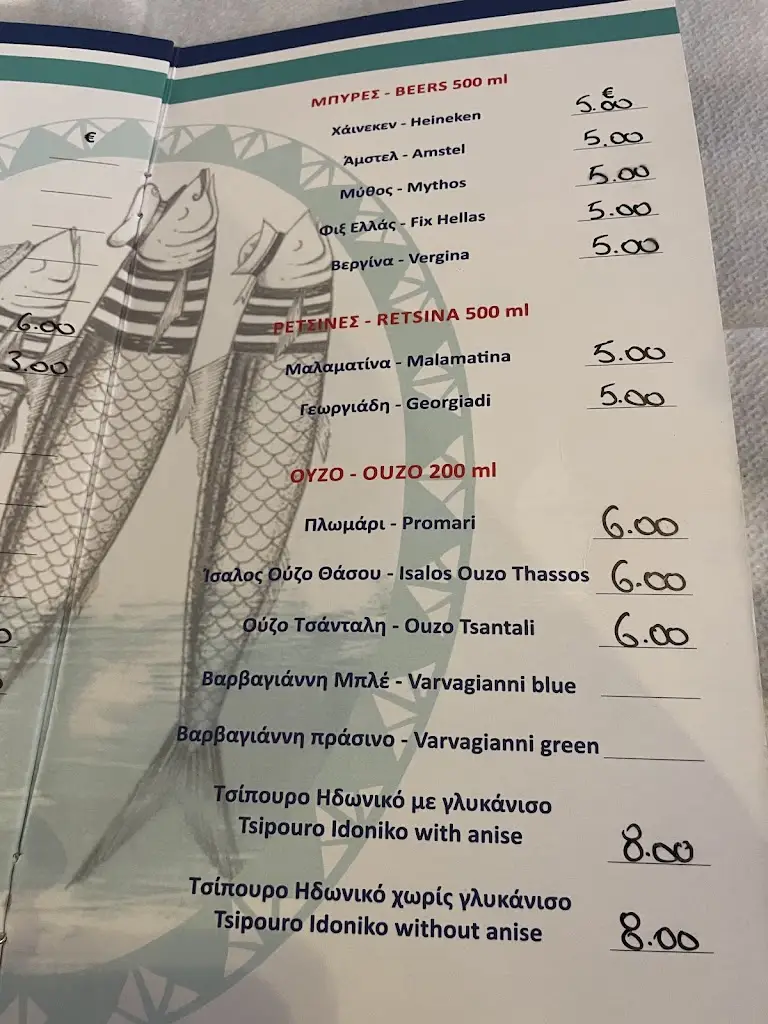 €
6.00
3.00
ΜΠΥΡΕΣ - BEERS 500 ml
€
Χάινεκεν - Heineken 5.00
Άμστελ - Amstel 5.00
Μύθος - Mythos 5.00
Φιξ Ελλάς - Fix Hellas 5.00
Βεργίνα - Vergina 5.00
ΡΕΤΣΙΝΕΣ - RETSINA 500 ml
Μαλαματίνα - Malamatina 5.00
Γεωργιάδη - Georgiadi 5.00
ΟΥΖΟ - OUZO 200 ml
Πλωμάρι - Promari 6.00
Ίσαλος Ούζο Θάσου - Isalos Ouzo Thassos 6.00
Ούζο Τσάνταλη - Ouzo Tsantali 6.00
Βαρβαγιάννη Μπλέ - Varvagianni blue
Βαρβαγιάννη πράσινο - Varvagianni green
Τσίπουρο Ηδωνικό με γλυκάνισο
Tsipouro Idoniko with anise 8.00
Τσίπουρο Ηδωνικό χωρίς γλυκάνισο
Tsipouro Idoniko without anise 8.00